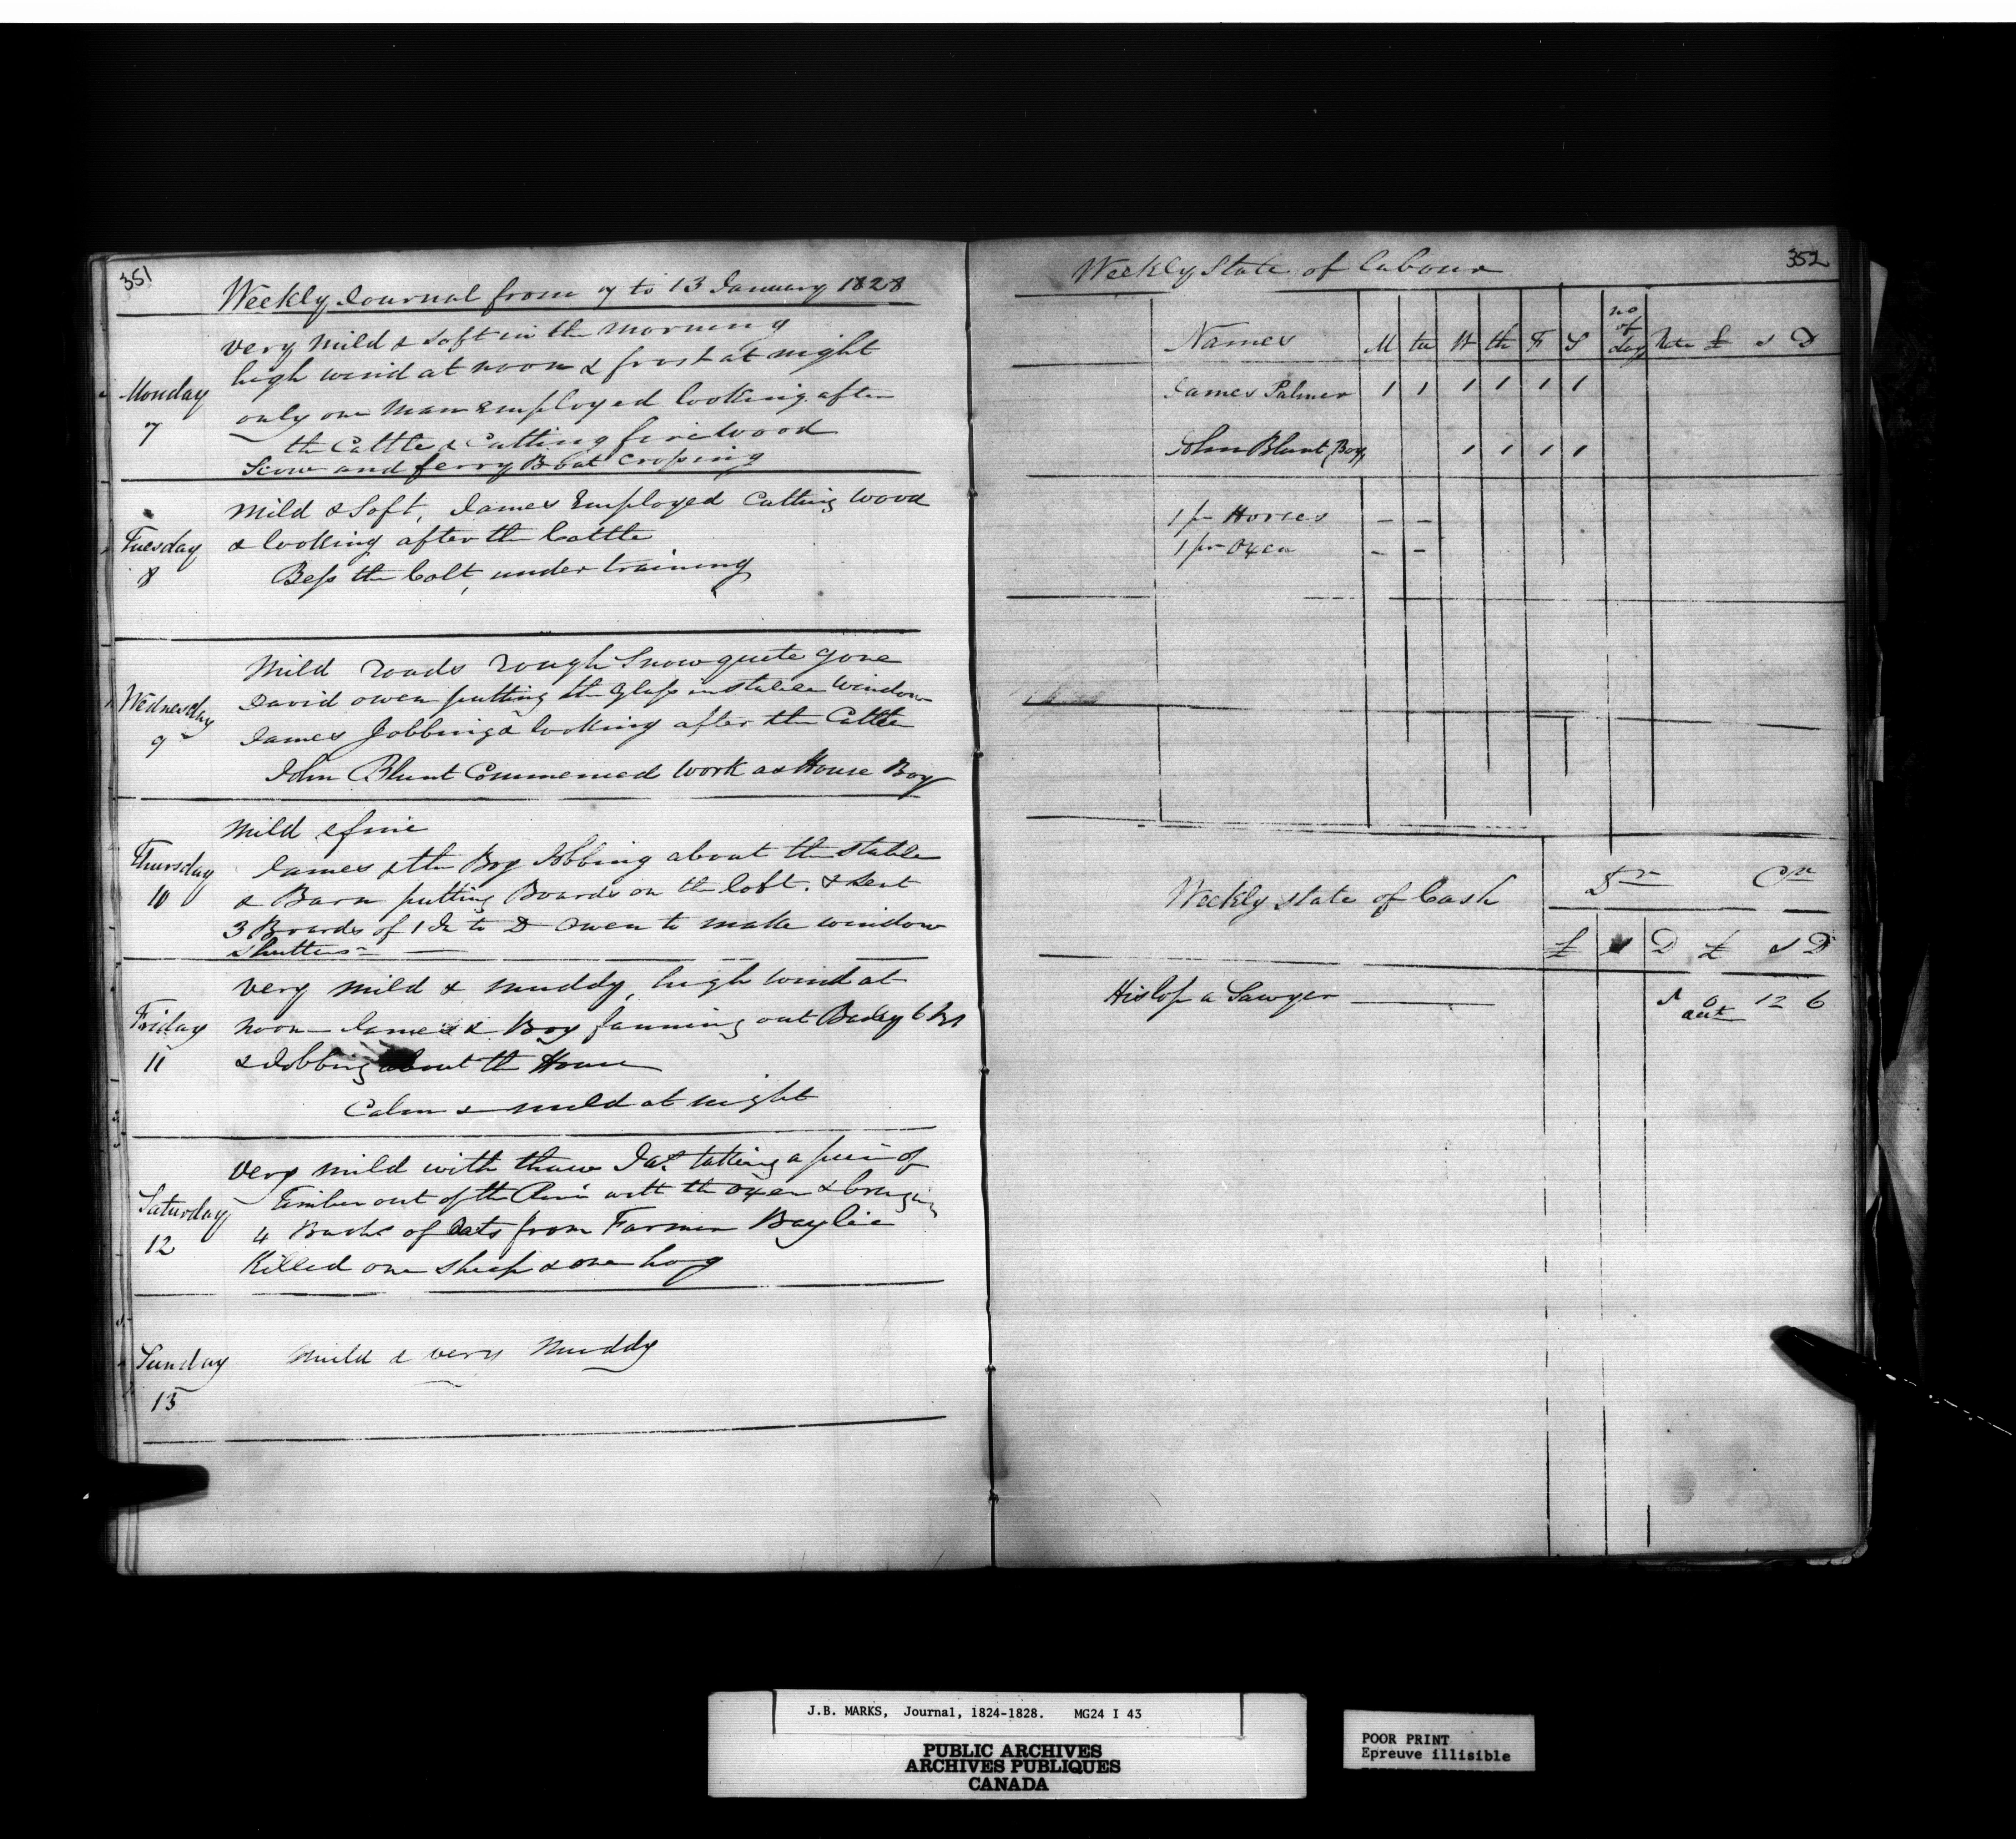 351
Weekly Journal from 7 to 13 January 1828
Monday
7
very mild & soft in the morning
high wind at noon & frost at night
only one man employed looking after
the Cattle & Cutting fire wood
Scow and ferry Boat crossing
Tuesday
8
Mild & Soft, James Employed Cutting wood
& looking after the Cattle
Bess the Colt, under training
Wednesday
9
Mild roads rough Snow quite gone
David Owen putting the glass in stable window
James Jobbing & looking after the Cattle
John Blunt Commenced work as House Boy
Thursday
10
Mild & fine
James & the Boy Jobbing about the stable
& Barn putting Boards on the loft. & sent
3 Boards of 1 In to D Owen to make window
shutters
Friday
11
very mild & muddy, high wind at
noon James & Boy fanning out Barley
& Jobbing about the House
Calm & mild at night
Saturday
12
very mild with thaw Jas. taking a piece of
Timber out of the River with the Oxen & bringing
4 Bushs of Oats from Farmer Baylie
Killed one sheep & one hog
Sunday
13
Mild & very Muddy
352
Weekly State of labour
Names M tu W th F S no of days Rate £ s D
James Palmer 1 1 1 1 1 1
John Blunt (Boy) 1 1 1 1
1 pr Horses – –
1 pr Oxen – –
Weekly state of Cash Dr Cr
£ s D £ s D
Hislop a Sawyer 12 6
J.B. MARKS, Journal, 1824-1828. MG24 I 43
PUBLIC ARCHIVES
ARCHIVES PUBLIQUES
CANADA
POOR PRINT
Epreuve illisible